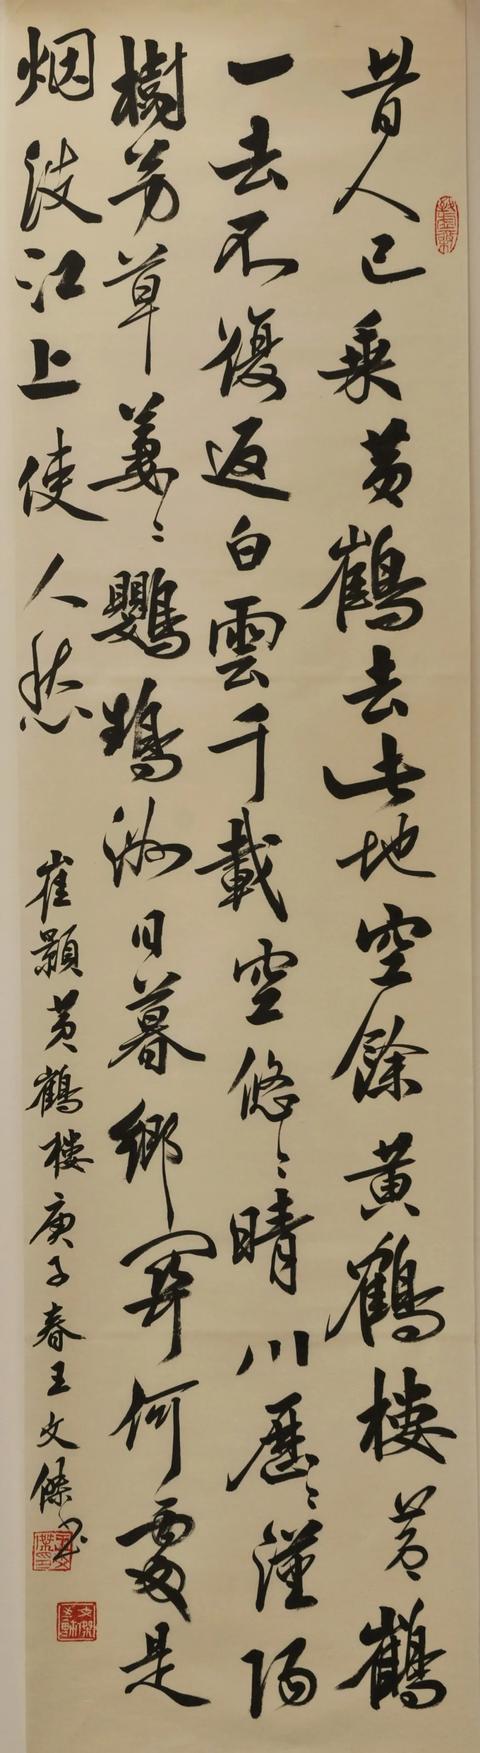 昔人已乘黄鶴去此地空餘黄鶴樓黄鶴
一去不復返白雲千載空悠〻晴川歷〻漢陽
樹芳草萋〻鸚鵡洲日暮鄉関何處是
烟波江上使人愁
崔顥黄鶴樓庚子春王文傑书